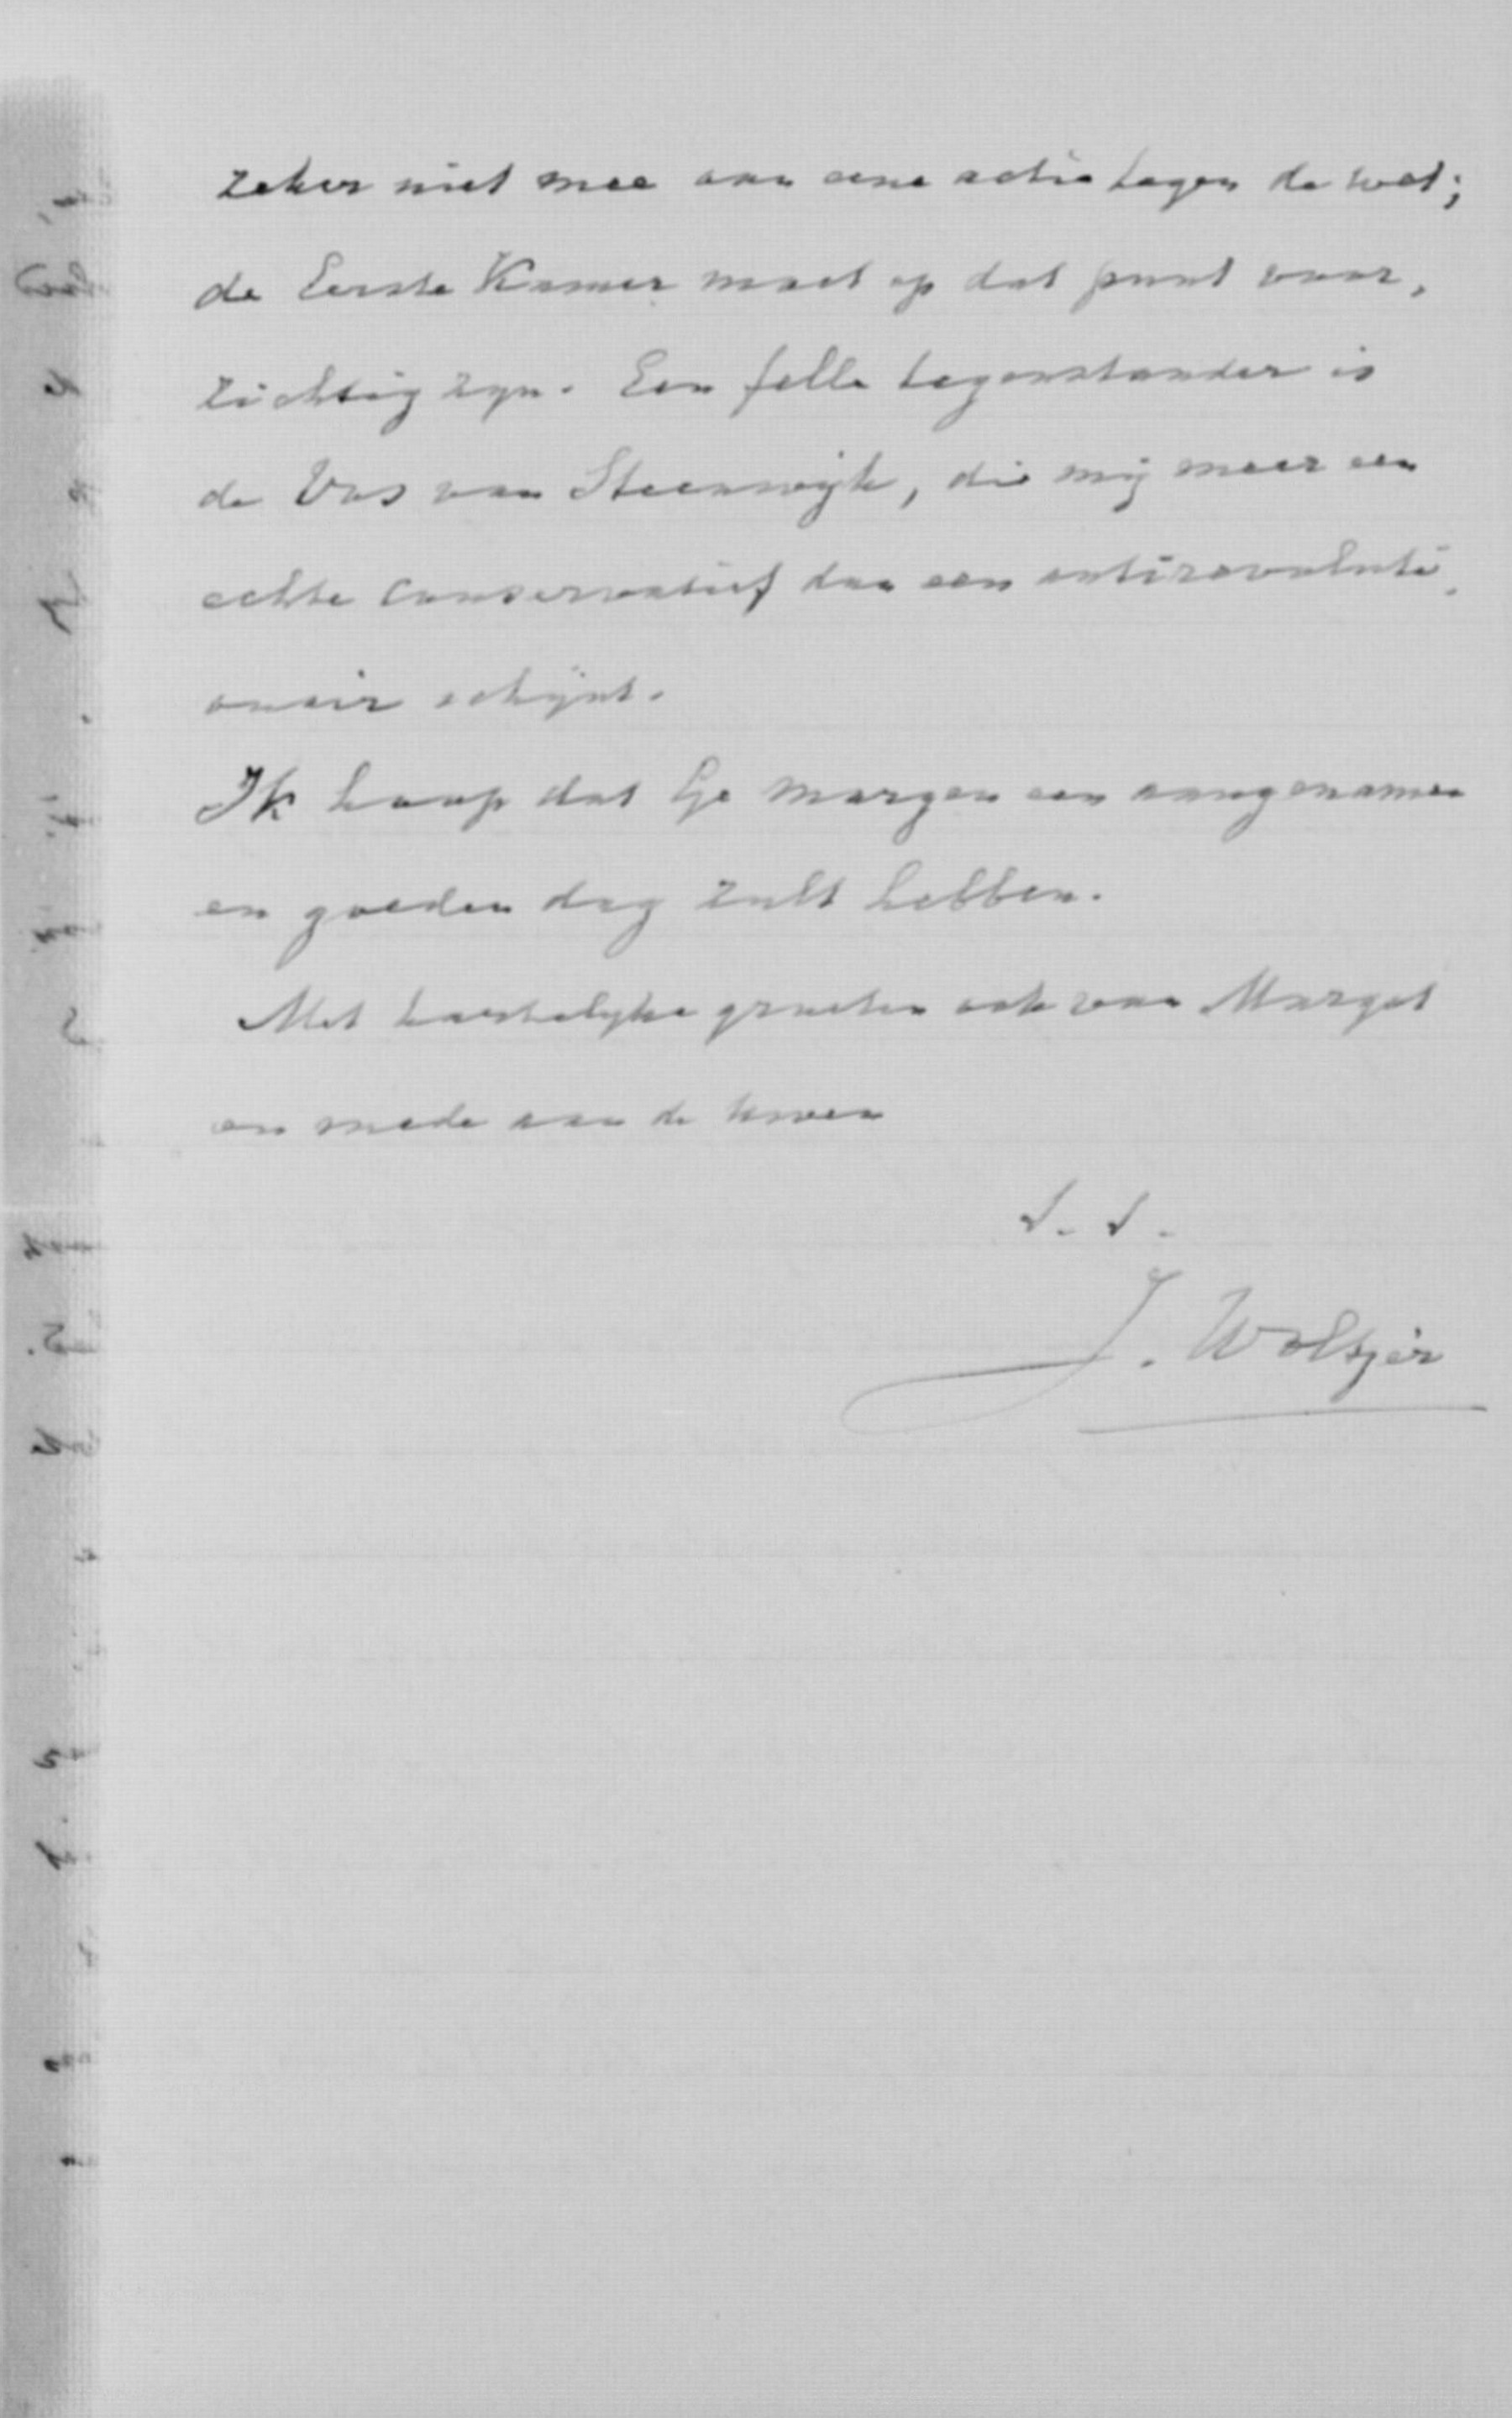 zeker niet mee aan eene actie tegen de wet;
de Eerste Kamer moet op dat punt voor-
zichtig zijn. Een felle tegenstander is
de Vos van Steenwijk, die mij meer een
echte conservatief dan een antirevoluti-
onair schijnt.
Ik hoop dat Ge morgen een aangenamen
en goeden dag zult hebben.
Met hartelijke groeten ook van Margot
en mede aan de uwen
t. t.
J. Woltjer